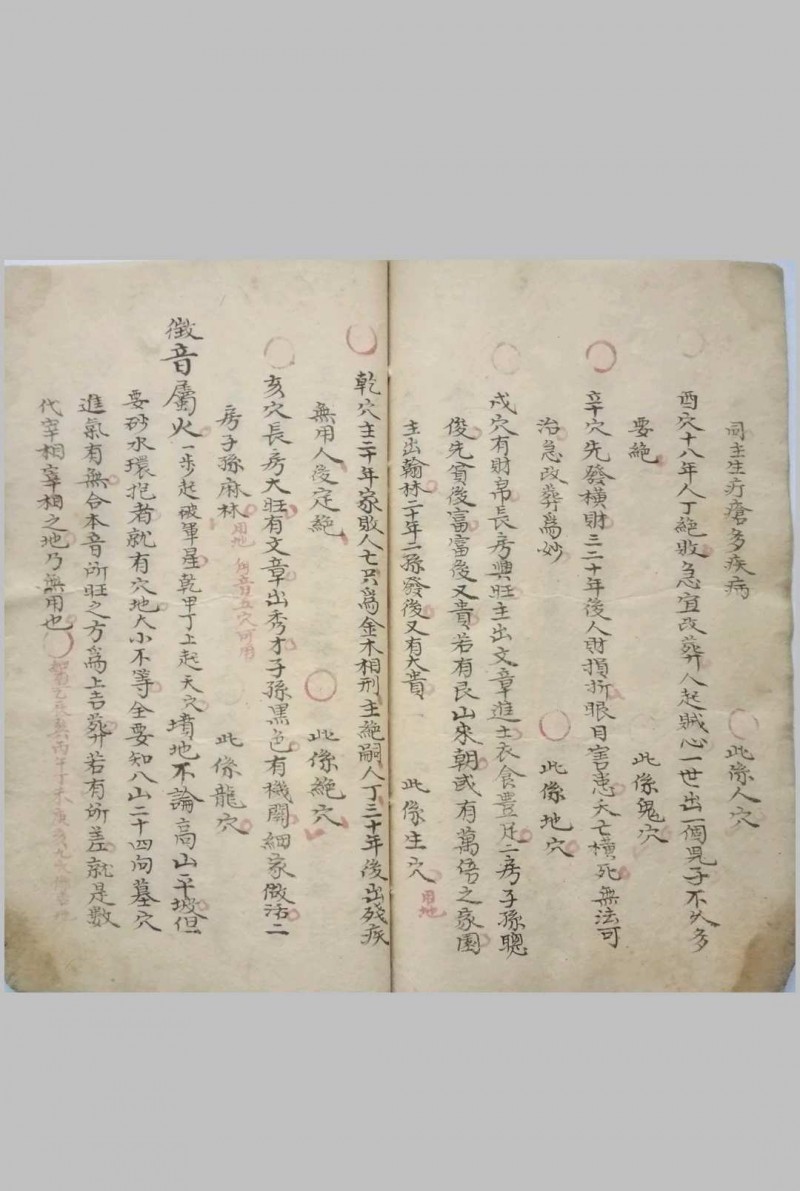 司主生疔瘡多疾病
此係人穴
酉穴十八年人丁絕敗急宜改葬人起賊心一世出一個兒子不久多
要絕
此係鬼穴
辛穴先發橫財三二十年後人財損折眼目害患夭亡橫死無法可
治急改葬爲妙
此係地穴
戌穴有財帛長房興旺主出文章進士衣食豊足二房子孫聰
俊先貧後富富後又貴若有艮山來朝或有萬倍之家園
主出翰林二十年二孫發後又有大貴
此係生穴
用地
乾穴主二十年家敗人七只爲金木相刑主絕嗣人丁三十年後出残疾
無用人後定絕
此係絕穴
亥穴長房大旺有文章出秀才子孫黑色有機關細家做活二
房子孫麻林
用地
五穴可用
此係龍穴
徵音屬火一步起破軍星乾甲丁上起天穴墳地不論高山平坡但
要砂水環抱者就有穴地大小不等全要知八山二十四向墓穴
進氣有無合本音所旺之方爲上吉葬若有所差就是數
代宰相宰相之地乃無用也